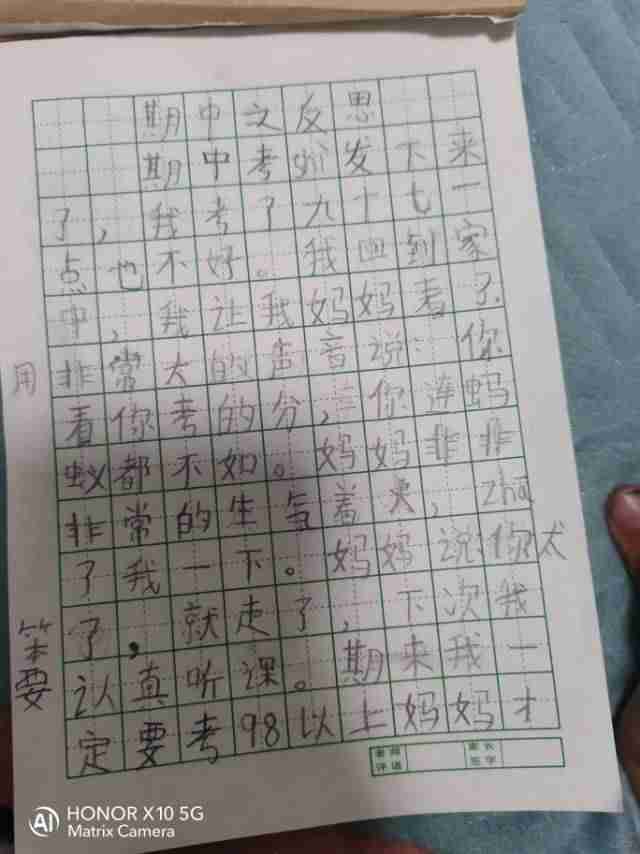 期中之反思
期中考shì发下来
了，我考了九十七一
点也不好。我回到家
中，我让我妈妈看了.
用非常大的声音说：你
看你考的分，你连蚂
蚁都不如。妈妈非非
非常的生气着火，zhā
了我一下。妈妈说：你太
笨了，就走了，下次我
要认真听课。期末我一
定要考98以上妈妈才
老师评语
家长签字
HONOR X10 5G
Matrix Camera